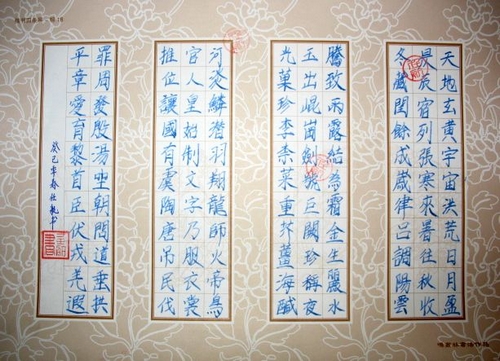 天地玄黃宇宙洪荒日月盈
昃辰宿列張寒來暑往秋收
冬藏閏餘成歲律呂調陽雲
騰致雨露結為霜金生麗水
玉出崐崗劍號巨闕珍稱夜
光菓珍李柰菜重芥薑海鹹
河淡鱗潛羽翔龍師火帝鳥
官人皇始制文字乃服衣裳
推位讓國有虞陶唐吊民伐
罪周發殷湯坐朝問道垂拱
平章愛育黎首臣伏戎羌遐
癸巳季春